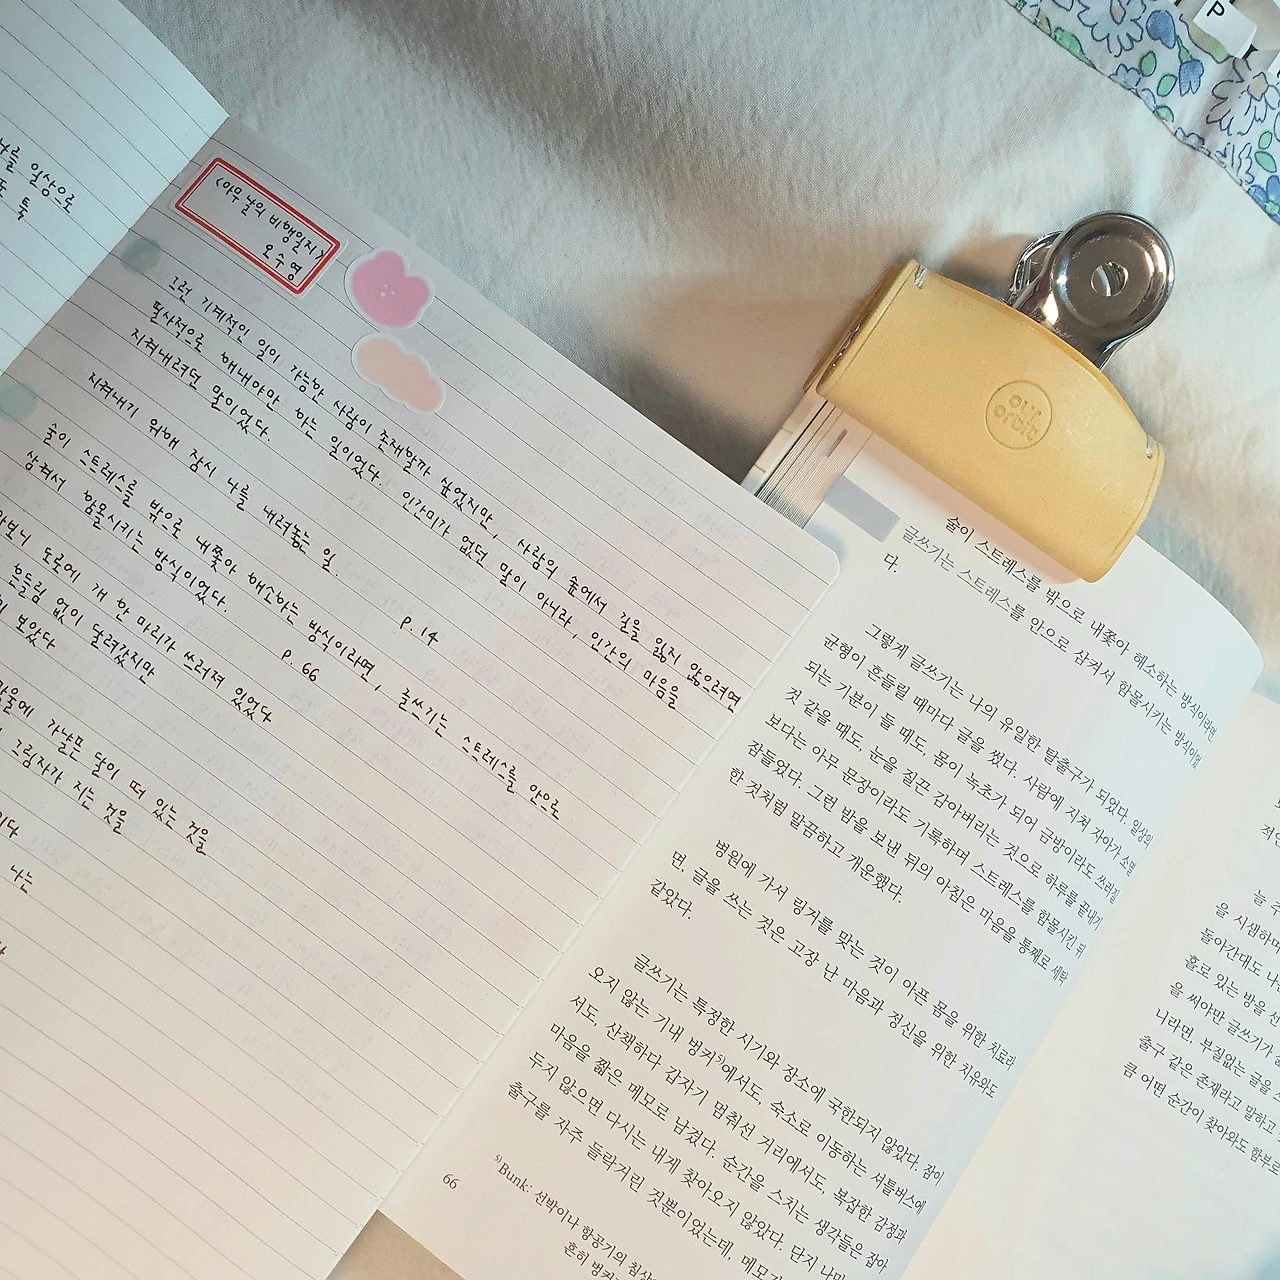 나를 일상으로
툭
<아무 날의 비행일지>
오수영
그런 기계적인 일이 가능한 사람이 존재할까 싶었지만, 사람의 숲에서 길을 잃지 않으려면
필사적으로 해내야만 하는 일이었다. 인간미가 없던 말이 아니라, 인간의 마음을
지켜내려던 말이었다.
지켜내기 위해 잠시 나를 내려놓는 일.
p. 14
술이 스트레스를 밖으로 내쫓아 해소하는 방식이라면, 글쓰기는 스트레스를 안으로
삼켜서 함몰시키는 방식이었다.
p. 66
도로에 개 한 마리가 쓰러져 있었다
흔들림 없이 달려갔지만
보았다
가냘픈 달이 떠 있는 것을
그림자가 지는 것을
나는
P
our
orbit
술이 스트레스를 밖으로 내쫓아 해소하는 방식이라면,
글쓰기는 스트레스를 안으로 삼켜서 함몰시키는 방식이었
다.
그렇게 글쓰기는 나의 유일한 탈출구가 되었다. 일상의
균형이 흔들릴 때마다 글을 썼다. 사람에 지쳐 자아가 소멸
되는 기분이 들 때도, 몸이 녹초가 되어 금방이라도 쓰러질
것 같을 때도, 눈을 질끈 감아버리는 것으로 하루를 끝내기
보다는 아무 문장이라도 기록하며 스트레스를 함몰시킨 뒤
잠들었다. 그런 밤을 보낸 뒤의 아침은 마음을 통째로 세탁
한 것처럼 말끔하고 개운했다.
병원에 가서 링거를 맞는 것이 아픈 몸을 위한 치료라
면, 글을 쓰는 것은 고장 난 마음과 정신을 위한 치유와도
같았다.
글쓰기는 특정한 시기와 장소에 국한되지 않았다. 잠이
오지 않는 기내 벙커5)에서도, 숙소로 이동하는 셔틀버스에
서도, 산책하다 갑자기 멈춰선 거리에서도, 복잡한 감정과
마음을 짧은 메모로 남겼다. 순간을 스치는 생각들은 잡아
두지 않으면 다시는 내게 찾아오지 않았다. 단지 나만
출구를 자주 들락거린 것뿐이었는데,
5) Bunk: 선박이나 항공기의
흔히
66
늘
을 시샘하며
돌아간대도
홀로 있는 방을
을 써야만 글쓰기가
니라면, 부질없는 글을
출구 같은 존재라고 말하고
큼 어떤 순간이 찾아와도